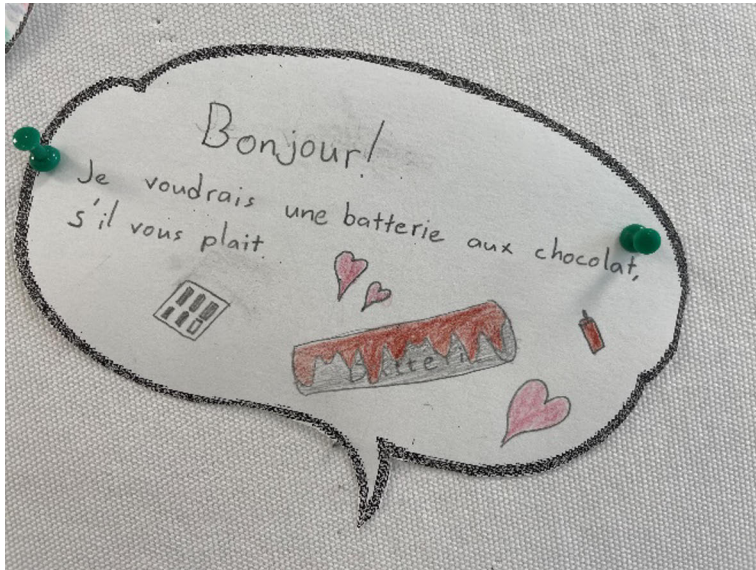 Bonjour!
Je voudrais une batterie aux chocolat,
s'il vous plait.
Batteri